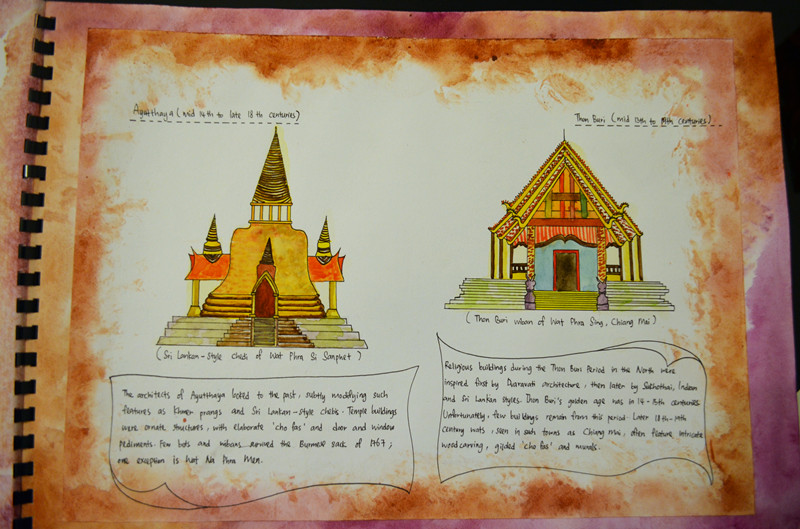 Ayutthaya (mid 14th to late 18th centuries)
(Sri Lankan-Style chedi of Wat Phra Si Sanphet)
The architects of Ayutthaya looked to the past, subtly modifying such
features as Khmer prangs and Sri Lankan-style chedis. Temple buildings
were ornate structures, with elaborate 'cho fas' and door and window
pediments. Few bots and wihans survived the Burmese sack of 1767;
one exception is Wat Na Phra Men.
Thon Buri (mid 11th to centuries)
(Thon Buri wihan of Wat Phra Sing, Chiang Mai)
Religious buildings during the Thon Buri Period in the North were
inspired first by Dvaravati architecture, then later by Sukhothai, Indian
and Sri Lankan styles. Thon Buri's golden age was in 14-15th centuries.
Unfortunately, few buildings remain from this period. Later 18th-19th
century wats, seen in such towns as Chiang Mai, often feature intricate
woodcarving, gilded 'cho fas' and murals.